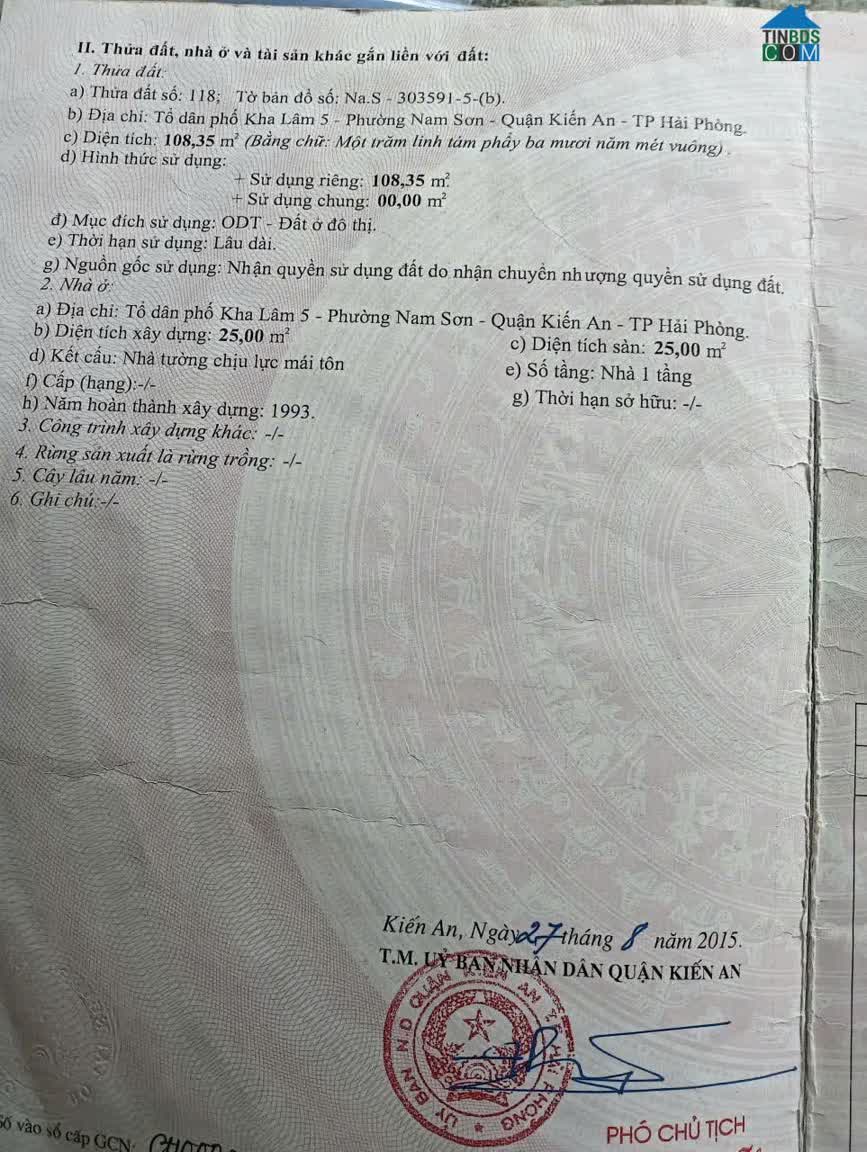 TINBDS
COM
II. Thửa đất, nhà ở và tài sản khác gắn liền với đất:
1. Thửa đất:
a) Thửa đất số: 118; Tờ bản đồ số: Na.S - 303591-5-(b).
b) Địa chỉ: Tổ dân phố Kha Lâm 5 - Phường Nam Sơn - Quận Kiến An - TP Hải Phòng.
c) Diện tích: 108,35 m² (Bằng chữ: Một trăm linh tám phẩy ba mươi năm mét vuông).
d) Hình thức sử dụng:
+ Sử dụng riêng: 108,35 m²
+ Sử dụng chung: 00,00 m²
đ) Mục đích sử dụng: ODT - Đất ở đô thị.
e) Thời hạn sử dụng: Lâu dài.
g) Nguồn gốc sử dụng: Nhận quyền sử dụng đất do nhận chuyển nhượng quyền sử dụng đất.
2. Nhà ở:
a) Địa chỉ: Tổ dân phố Kha Lâm 5 - Phường Nam Sơn - Quận Kiến An - TP Hải Phòng.
b) Diện tích xây dựng: 25,00 m² c) Diện tích sàn: 25,00 m²
d) Kết cấu: Nhà tường chịu lực mái tôn e) Số tầng: Nhà 1 tầng
f) Cấp (hạng):-/- g) Thời hạn sở hữu: -/-
h) Năm hoàn thành xây dựng: 1993.
3. Công trình xây dựng khác: -/-
4. Rừng sản xuất là rừng trồng: -/-
5. Cây lâu năm: -/-
6. Ghi chú:-/-
Kiến An, Ngày 27 tháng 8 năm 2015.
T.M. UỶ BAN NHÂN DÂN QUẬN KIẾN AN
ỦY BAN N.D QUẬN KIẾN AN T.P HẢI PHÒNG
PHÓ CHỦ TỊCH
Số vào sổ cấp GCN: